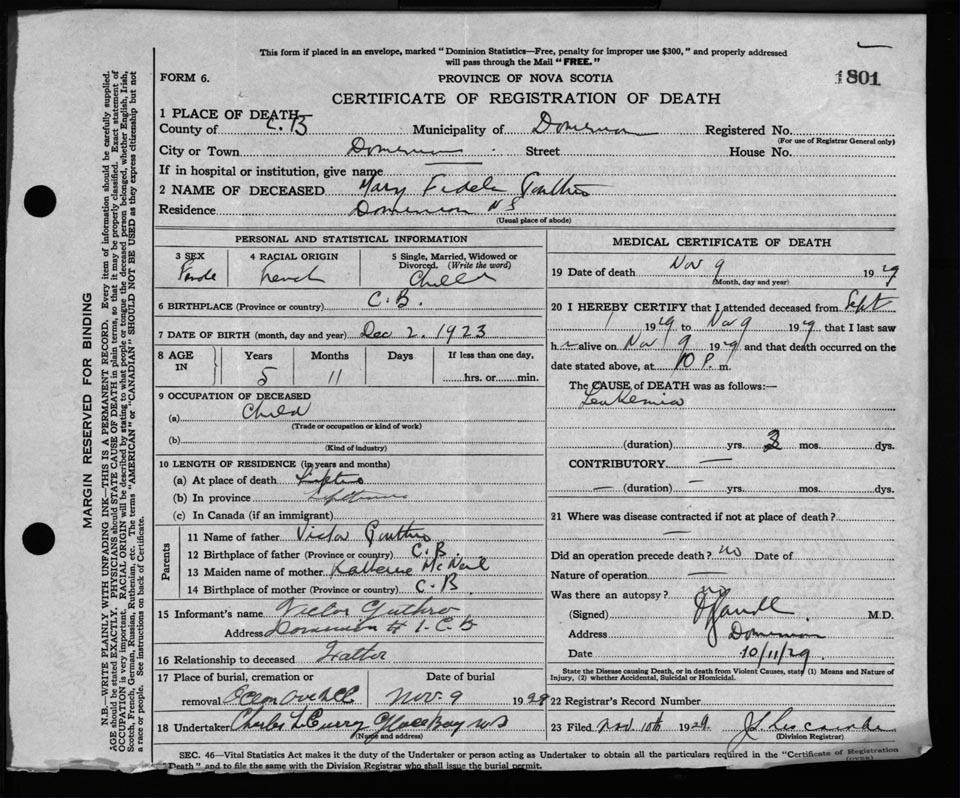 This form if placed in an envelope, marked "Dominion Statistics—Free, penalty for improper use $300," and properly addressed
will pass through the Mail "FREE."
FORM 6.
PROVINCE OF NOVA SCOTIA
1801
CERTIFICATE OF REGISTRATION OF DEATH
1 PLACE OF DEATH
County of C. B Municipality of Dominion Registered No.
(For use of Registrar General only)
City or Town Dominion Street House No.
If in hospital or institution, give name
2 NAME OF DECEASED Mary Fidele
Residence Dominion N S
(Usual place of abode)
PERSONAL AND STATISTICAL INFORMATION
3 SEX 4 RACIAL ORIGIN 5 Single, Married, Widowed or
Divorced. (Write the word)
French Child
6 BIRTHPLACE (Province or country) C. B.
7 DATE OF BIRTH (month, day and year) Dec 2. 1923
8 AGE IN Years Months Days If less than one day,
5 11 hrs. or min.
9 OCCUPATION OF DECEASED
(a) Child
(Trade or occupation or kind of work)
(b)
(Kind of industry)
10 LENGTH OF RESIDENCE (in years and months)
(a) At place of death Lifetime
(b) In province Lifetime
(c) In Canada (if an immigrant)
Parents
11 Name of father Victor
12 Birthplace of father (Province or country) C. B.
13 Maiden name of mother Katherine McNeil
14 Birthplace of mother (Province or country) C. B
15 Informant's name Victor Guthro
Address Dominion # 1. C B
16 Relationship to deceased Father
17 Place of burial, cremation or
removal Date of burial
Nov. 9 1929
18 Undertaker Charles L Curry Glace Bay N S
(Name and address)
MEDICAL CERTIFICATE OF DEATH
19 Date of death Nov 9 1929
(Month, day and year)
20 I HEREBY CERTIFY that I attended deceased from Sept
1 1929 to Nov 9 1929, that I last saw
h r alive on Nov 9 1929 and that death occurred on the
date stated above, at 10 P. m.
The CAUSE OF DEATH was as follows:—
Leukemia
(duration) yrs. mos. dys.
CONTRIBUTORY —
— (duration) — yrs. mos. dys.
21 Where was disease contracted if not at place of death?
—
Did an operation precede death? no Date of
Nature of operation —
Was there an autopsy? no
(Signed) M.D.
Address Dominion
Date 10/11/29
State the Disease causing Death, or in death from Violent Causes, state (1) Means and Nature of
Injury, (2) whether Accidental, Suicidal or Homicidal.
22 Registrar's Record Number
23 Filed Nov. 10th 1929
(Division Registrar)
SEC. 46—Vital Statistics Act makes it the duty of the Undertaker or person acting as Undertaker to obtain all the particulars required in the "Certificate of Registration
Death" and to file the same with the Division Registrar who shall issue the burial permit.
(OVER)
MARGIN RESERVED FOR BINDING
N.B.—WRITE PLAINLY WITH UNFADING INK—THIS IS A PERMANENT RECORD. Every item of information should be carefully supplied.
AGE should be stated EXACTLY. PHYSICIANS should STATE CAUSE OF DEATH in plain terms, so that it may be properly classified. Exact statement of
OCCUPATION is very important. RACIAL ORIGIN will be described by stating to what people or tongue the deceased person belonged, whether English, Irish,
Scotch, French, German, Russian, Ruthenian, etc. The terms "AMERICAN" or "CANADIAN" SHOULD NOT BE USED as they express citizenship but not
a race or people. See instructions on back of Certificate.